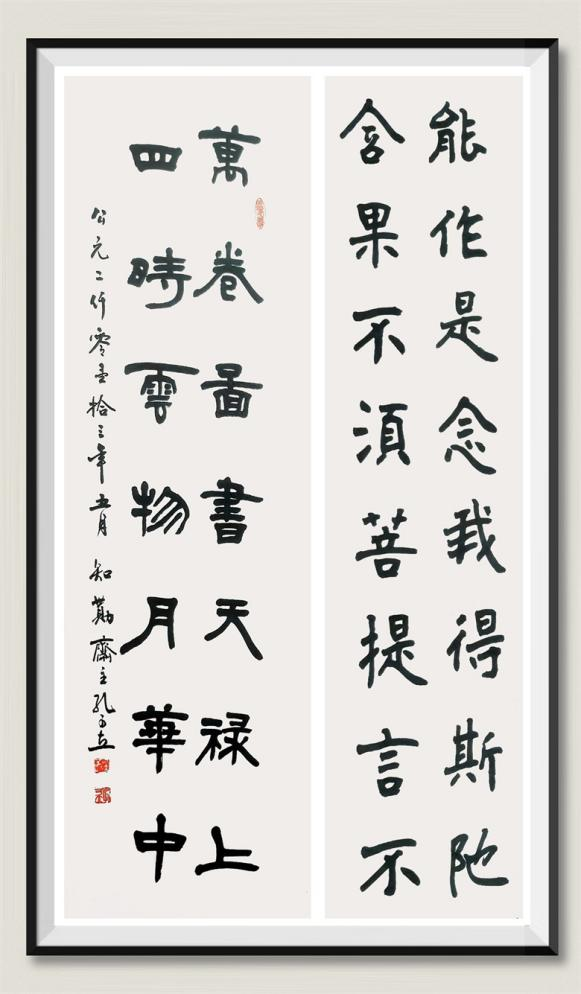 能作是念我得斯陀
含果不須菩提言不
萬卷圖書天祿上
四時雲物月華中
公元二仟零壹拾三年五月 知勤齋主孔子立